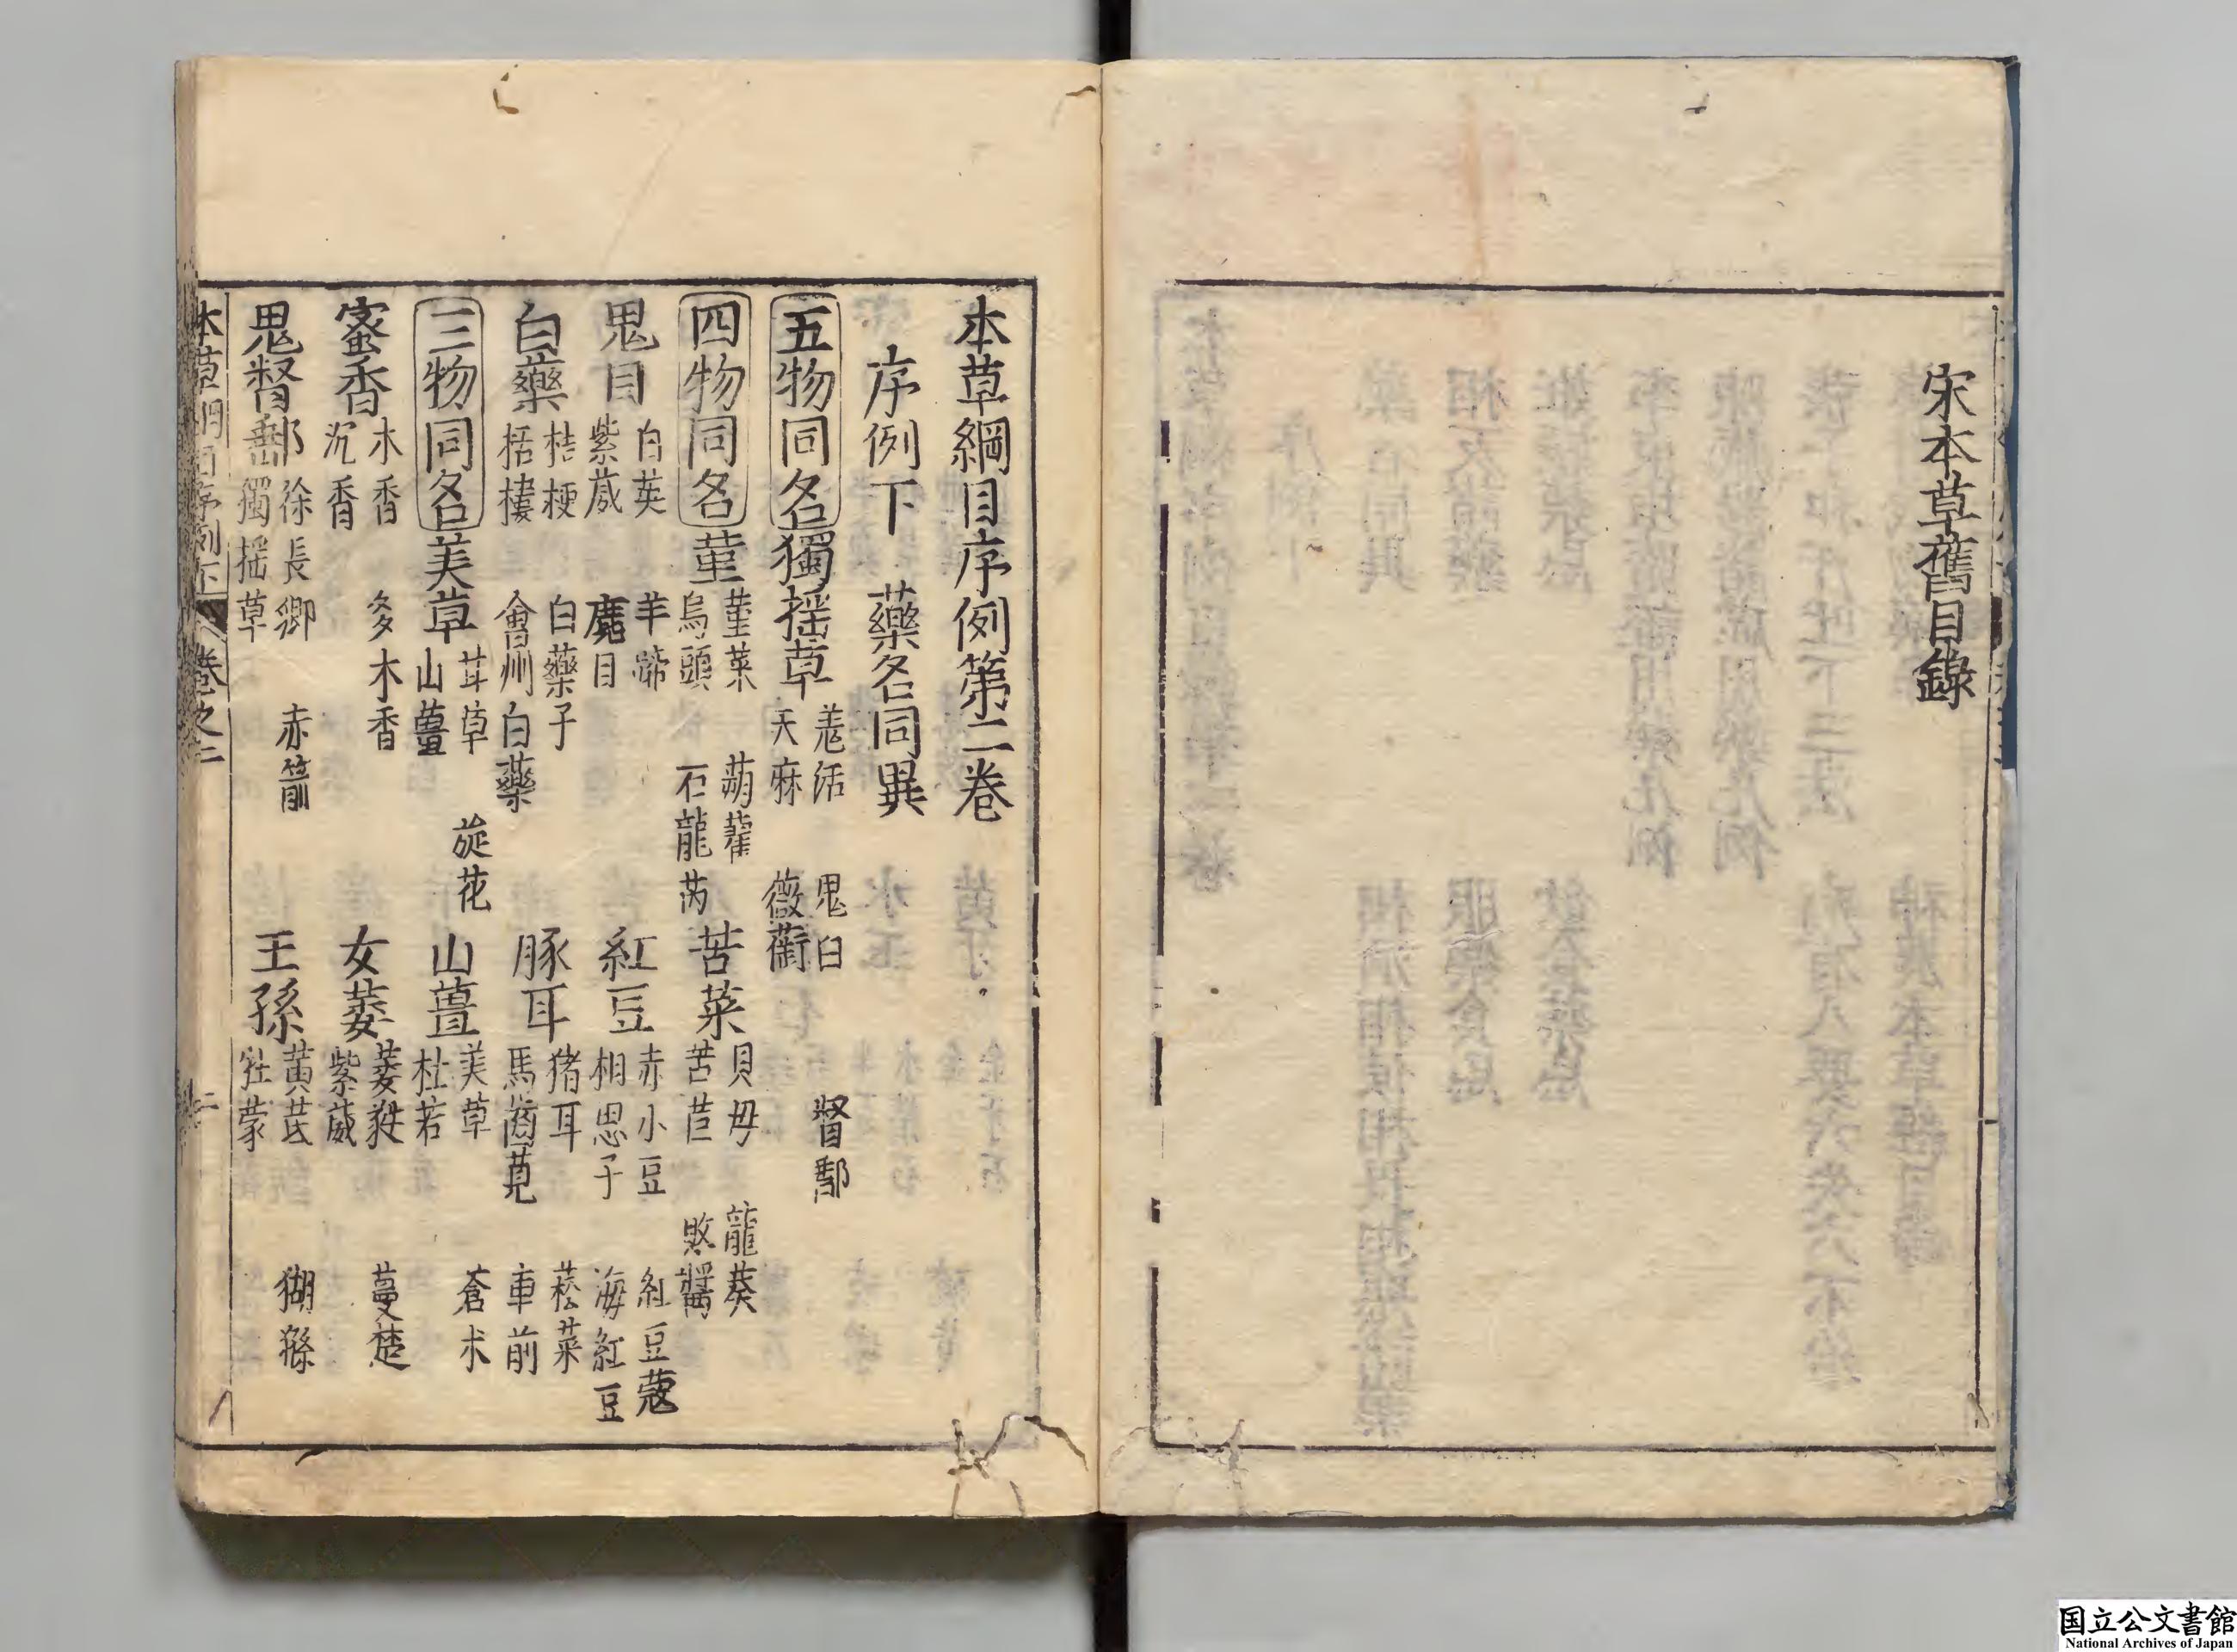 宋本草舊目錄
本草綱目序例第二卷
序例下 藥名同異
五物同名 獨搖草 羗活 鬼臼 督郵
天麻 薇蘅
四物同名 菫 菫菜 蒴藋 苦菜 貝母 龍葵
烏頭 石龍芮 苦苣 敗醬
鬼目 白英 羊蹄 紅豆 赤小豆 紅豆蔻
紫葳 麂目 相思子 海紅豆
白藥 桔梗 白藥子 豚耳 豬耳 菘菜
栝樓 會州白藥 馬齒莧 車前
三物同名 美草 甘草 旋花 山薑 美草 蒼朮
山薑 杜若
蜜香 木香 多木香 女萎 萎蕤 蔓楚
沉香 紫葳
鬼督郵 徐長卿 赤箭 王孫 黃芪 猢猻
獨搖草 牡蒙
本草綱目序例下 卷之二 二
国立公文書館
National Archives of Japan